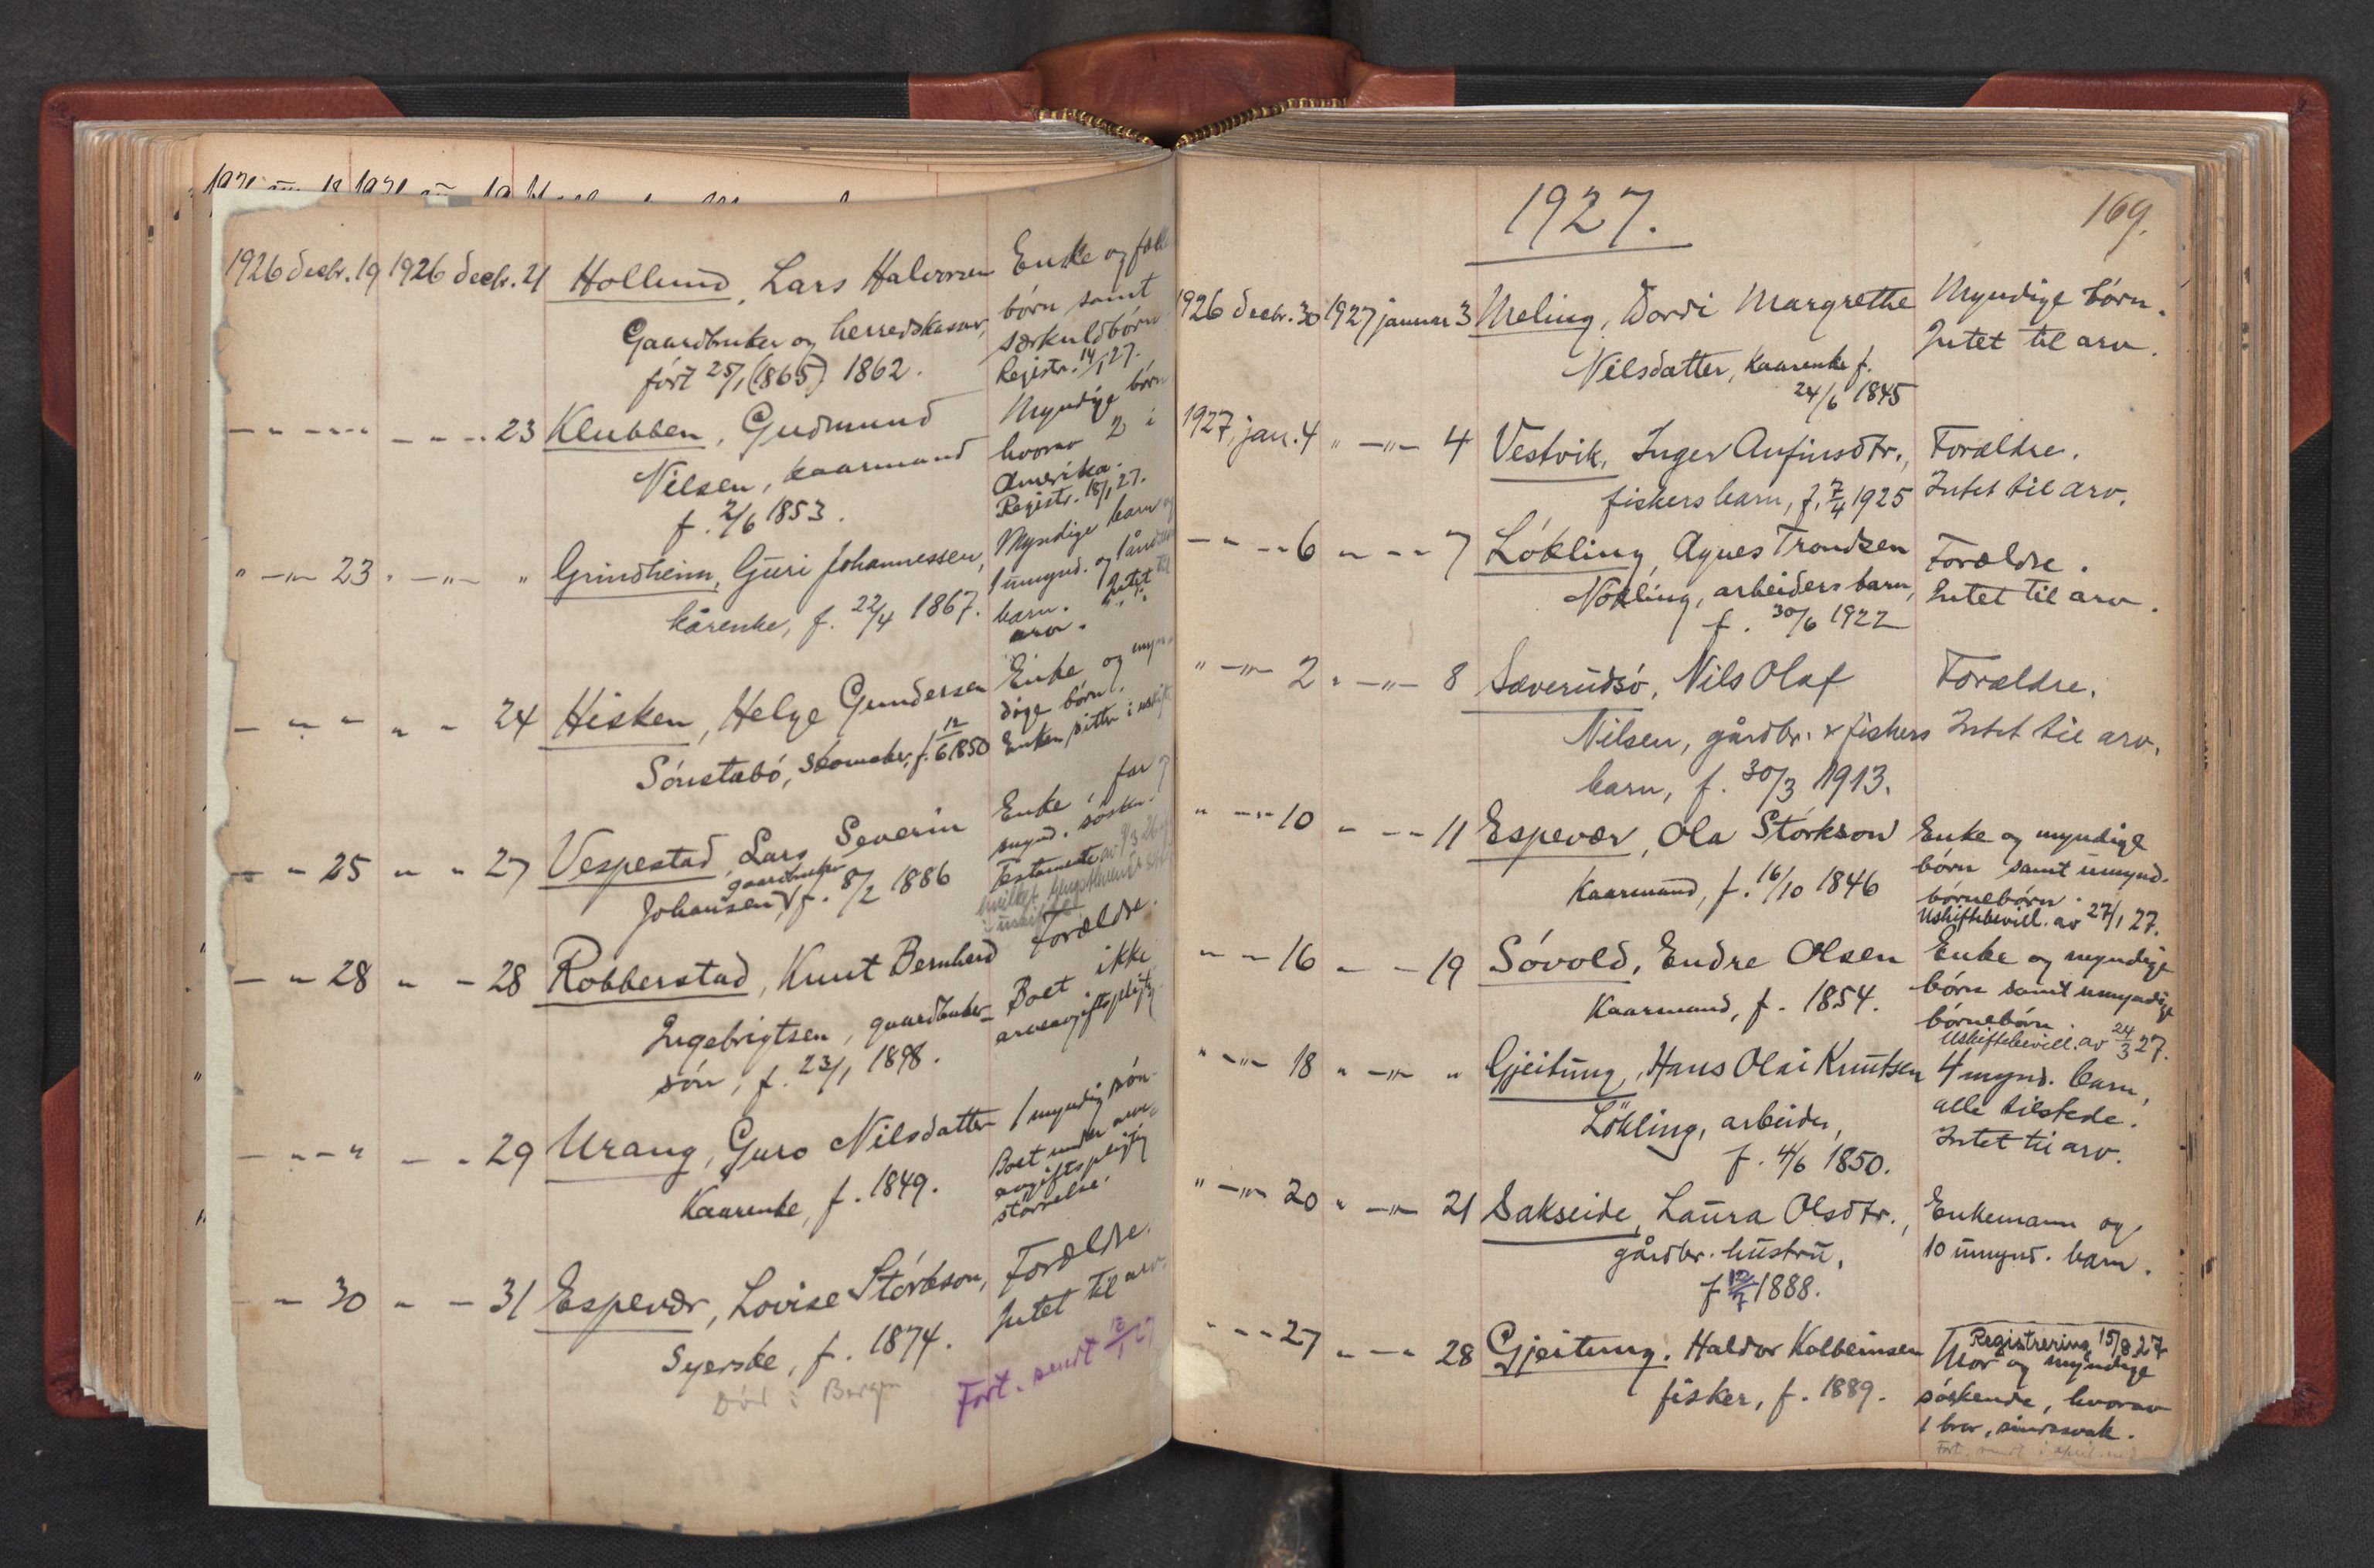 1926 decbr. 19 1926 decbr. 21 Hollund, Lars Halvorsen Enke og
Gaardbruker og herredskasser, børn samt
født 25/1 (1865) 1862. særkuldbørn
Registr. 14/1 27.
— " — — — " — 23 Klubben, Gudmund Myndige børn
Nilsen, kaarmand hvorav 2 i
f. 2/6 1853. Amerika.
Registr. 18/1 27.
" —"— 23 " —"— " Grindheim, Guri Johannessen, Myndige barn og
kårenke, f. 22/4 1867. 1 umynd. og
barn. Intet til
arv.
— " — " " - 24 Hisken, Helge Gundersen Enke og myn-
Sønstabø, skomaker, f. 12/6 1850 dige børn.
Enken sitter i uskift
— " 25 " " 27 Vespestad, Lars Severin Enke, far og
gaardbruker mynd. søsk.
Johansen, f. 8/2 1886 Testamente av
— " 28 " — 28 Robberstad, Knut Bernhard Forældre.
Ingebrigtsen, gaardbruker- Boet ikke
søn, f. 23/1 1898. arveavgiftspligtig.
— " — " — " 29 Urang, Guro Nilsdatter 1 myndig søn.
Kaarenke, f. 1849. Boet under arve-
avgiftspligtig
størrelse.
— " 30 " — 31 Espevær, Lovise Størkson, Forældre.
Syerske, f. 1874. Intet til arv.
Død i Bergen Fort. sendt 13/1 27
1927. 169.
1926 decbr. 30 1927 januar 3 Meling, Dordi Margrethe Myndige børn.
Nilsdatter, kaarenke f. Intet til arv.
24/6 1845
1927, jan. 4 " —"— 4 Vestvik, Inger Anfinsdtr., Forældre.
fiskers barn, f. 7/4 1925 Intet til arv.
— " — 6 " — " 7 Løkling, Agnes Trondsen Forældre.
Nøkling, arbeiders barn, Intet til arv.
f. 30/6 1922
" —"— 2 " —"— 8 Sæverudsø, Nils Olaf Forældre.
Nilsen, gårdbr. & fiskers Intet til arv.
barn, f. 30/3 1913.
" —"— 10 " — " 11 Espevær, Ola Størkson Enke og myndige
Kaarmand, f. 16/10 1846 børn samt umynd.
børnebørn.
Uskiftebevill. av 27/1 27.
" — 16 " — 19 Søvold, Endre Olsen Enke og myndige
Kaarmand, f. 1854. børn samt umyndige
børnebørn.
Uskiftebevill. av 24/3 27.
" —"— 18 " —"— " Gjeitung, Hans Olai Knutsen 4 mynd. barn,
Løkling, arbeider, alle tilstede.
f. 4/6 1850. Intet til arv.
" —"— 20 " —"— 21 Sakseide, Laura Olsdtr., Enkemann og
gårdbr. hustru, 10 umynd. barn.
f 12/7 1888.
" — " 27 " — " 28 Gjeitung, Haldor Kolbeinsen Registrering 15/8 27
Mor og myndige
fisker, f. 1889. søskende, hvorav
1 bror, sindssvak.
Fort. sendt i april